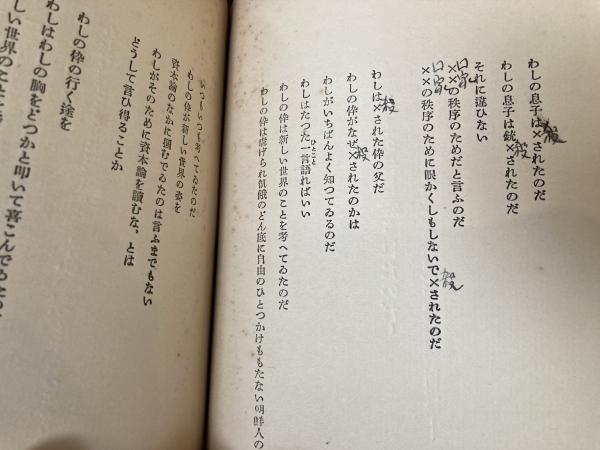 わしの息子は×されたのだ
殺
わしの息子は銃×されたのだ
殺
それに違ひない
××の秩序のためだと言ふのだ
××の秩序のために眼かくしもしないで×されたのだ
殺
わしは×された倅の父だ
殺
わしの倅がなぜ×されたのかは
殺
わしがいちばんよく知つてゐるのだ
わしはたつた一言語ればいい
ひとこと
わしの倅は新しい世界のことを考へてゐたのだ
わしの倅は虐げられ飢餓のどん底に自由のひとつかけももたない朝鮮人の
いつもいつも考へてゐたのだ
わしの倅が新しい世界の姿を
資本論のなかに掴むでゐたのは言ふまでもない
わしがそのために資本論を讀むな、とは
どうして言ひ得ることか
わしの倅の行く途を
わしはわしの胸をどつかと叩いて喜こんでゐた
しい世界の